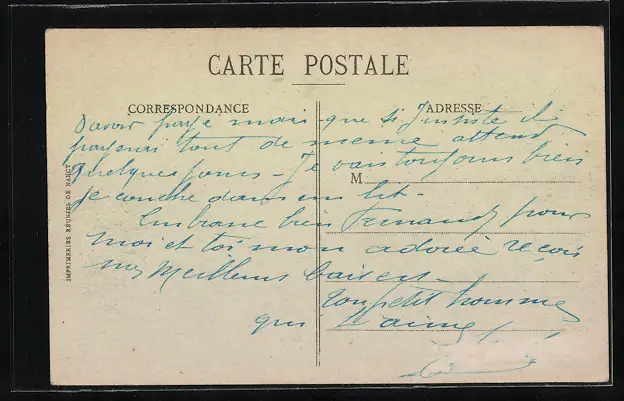 CARTE POSTALE
CORRESPONDANCE
ADRESSE
d'avoir payé mais que si j'insiste il
payerai tout de meme attend
quelques jours - Je vais toujours bien
M
je couche dans un lit -
Embrasse bien Fernand pour
moi et toi mon adorée reçois
mes meilleurs baisers -
ton petit homme
qui t'aime
IMPRIMERIES RÉUNIES DE NANCY